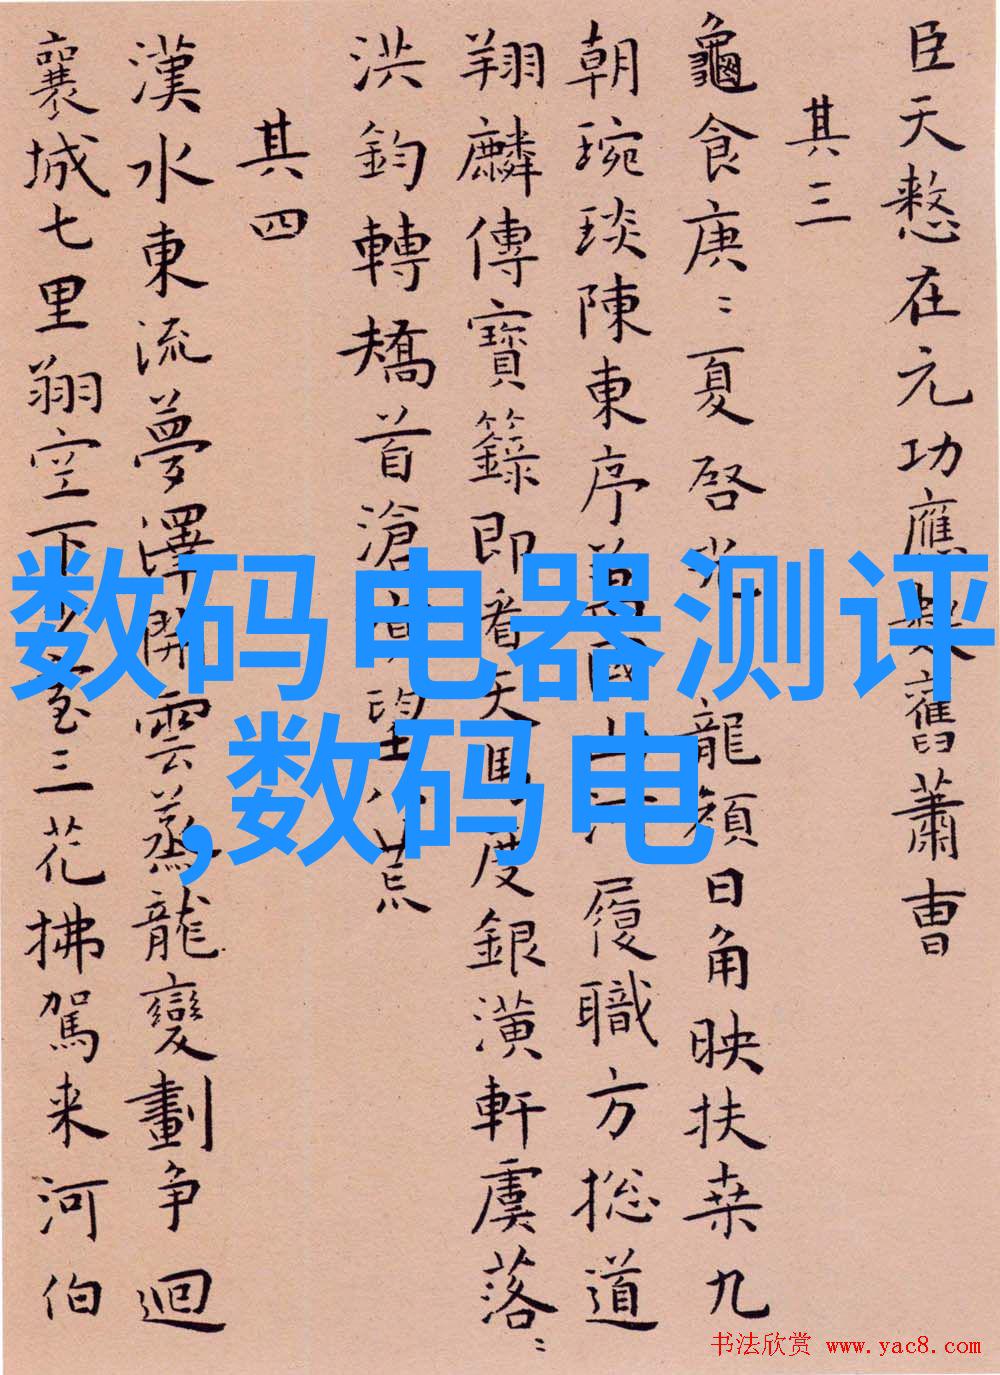 臣天憗在元功應舊蕭曹
其三
龜食庚〻夏啓光龍顔日角映扶桒九
朝琬琰陳東序萬國山河履職方揔道
翔麟傳寶籙即看天馬度銀潢軒虞落〻
洪鈞轉矯首滄望八荒
其四
漢水東流夢澤開雲蒸龍變劃争迴
襄城七里翔空下少室三花拂駕来河伯
数码电器测评
,数码电
书法欣赏 www.yac8.com